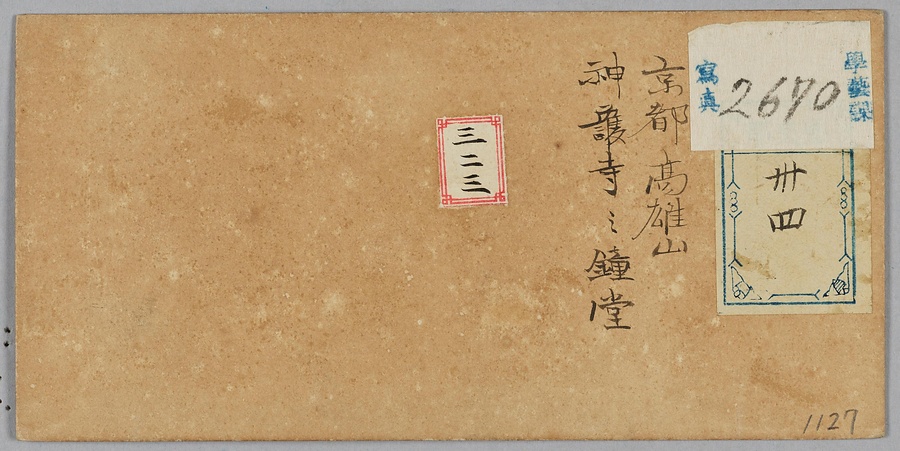 學藝課
2670
寫真
卅四
京都高雄山
神護寺之鐘堂
三二三
1127